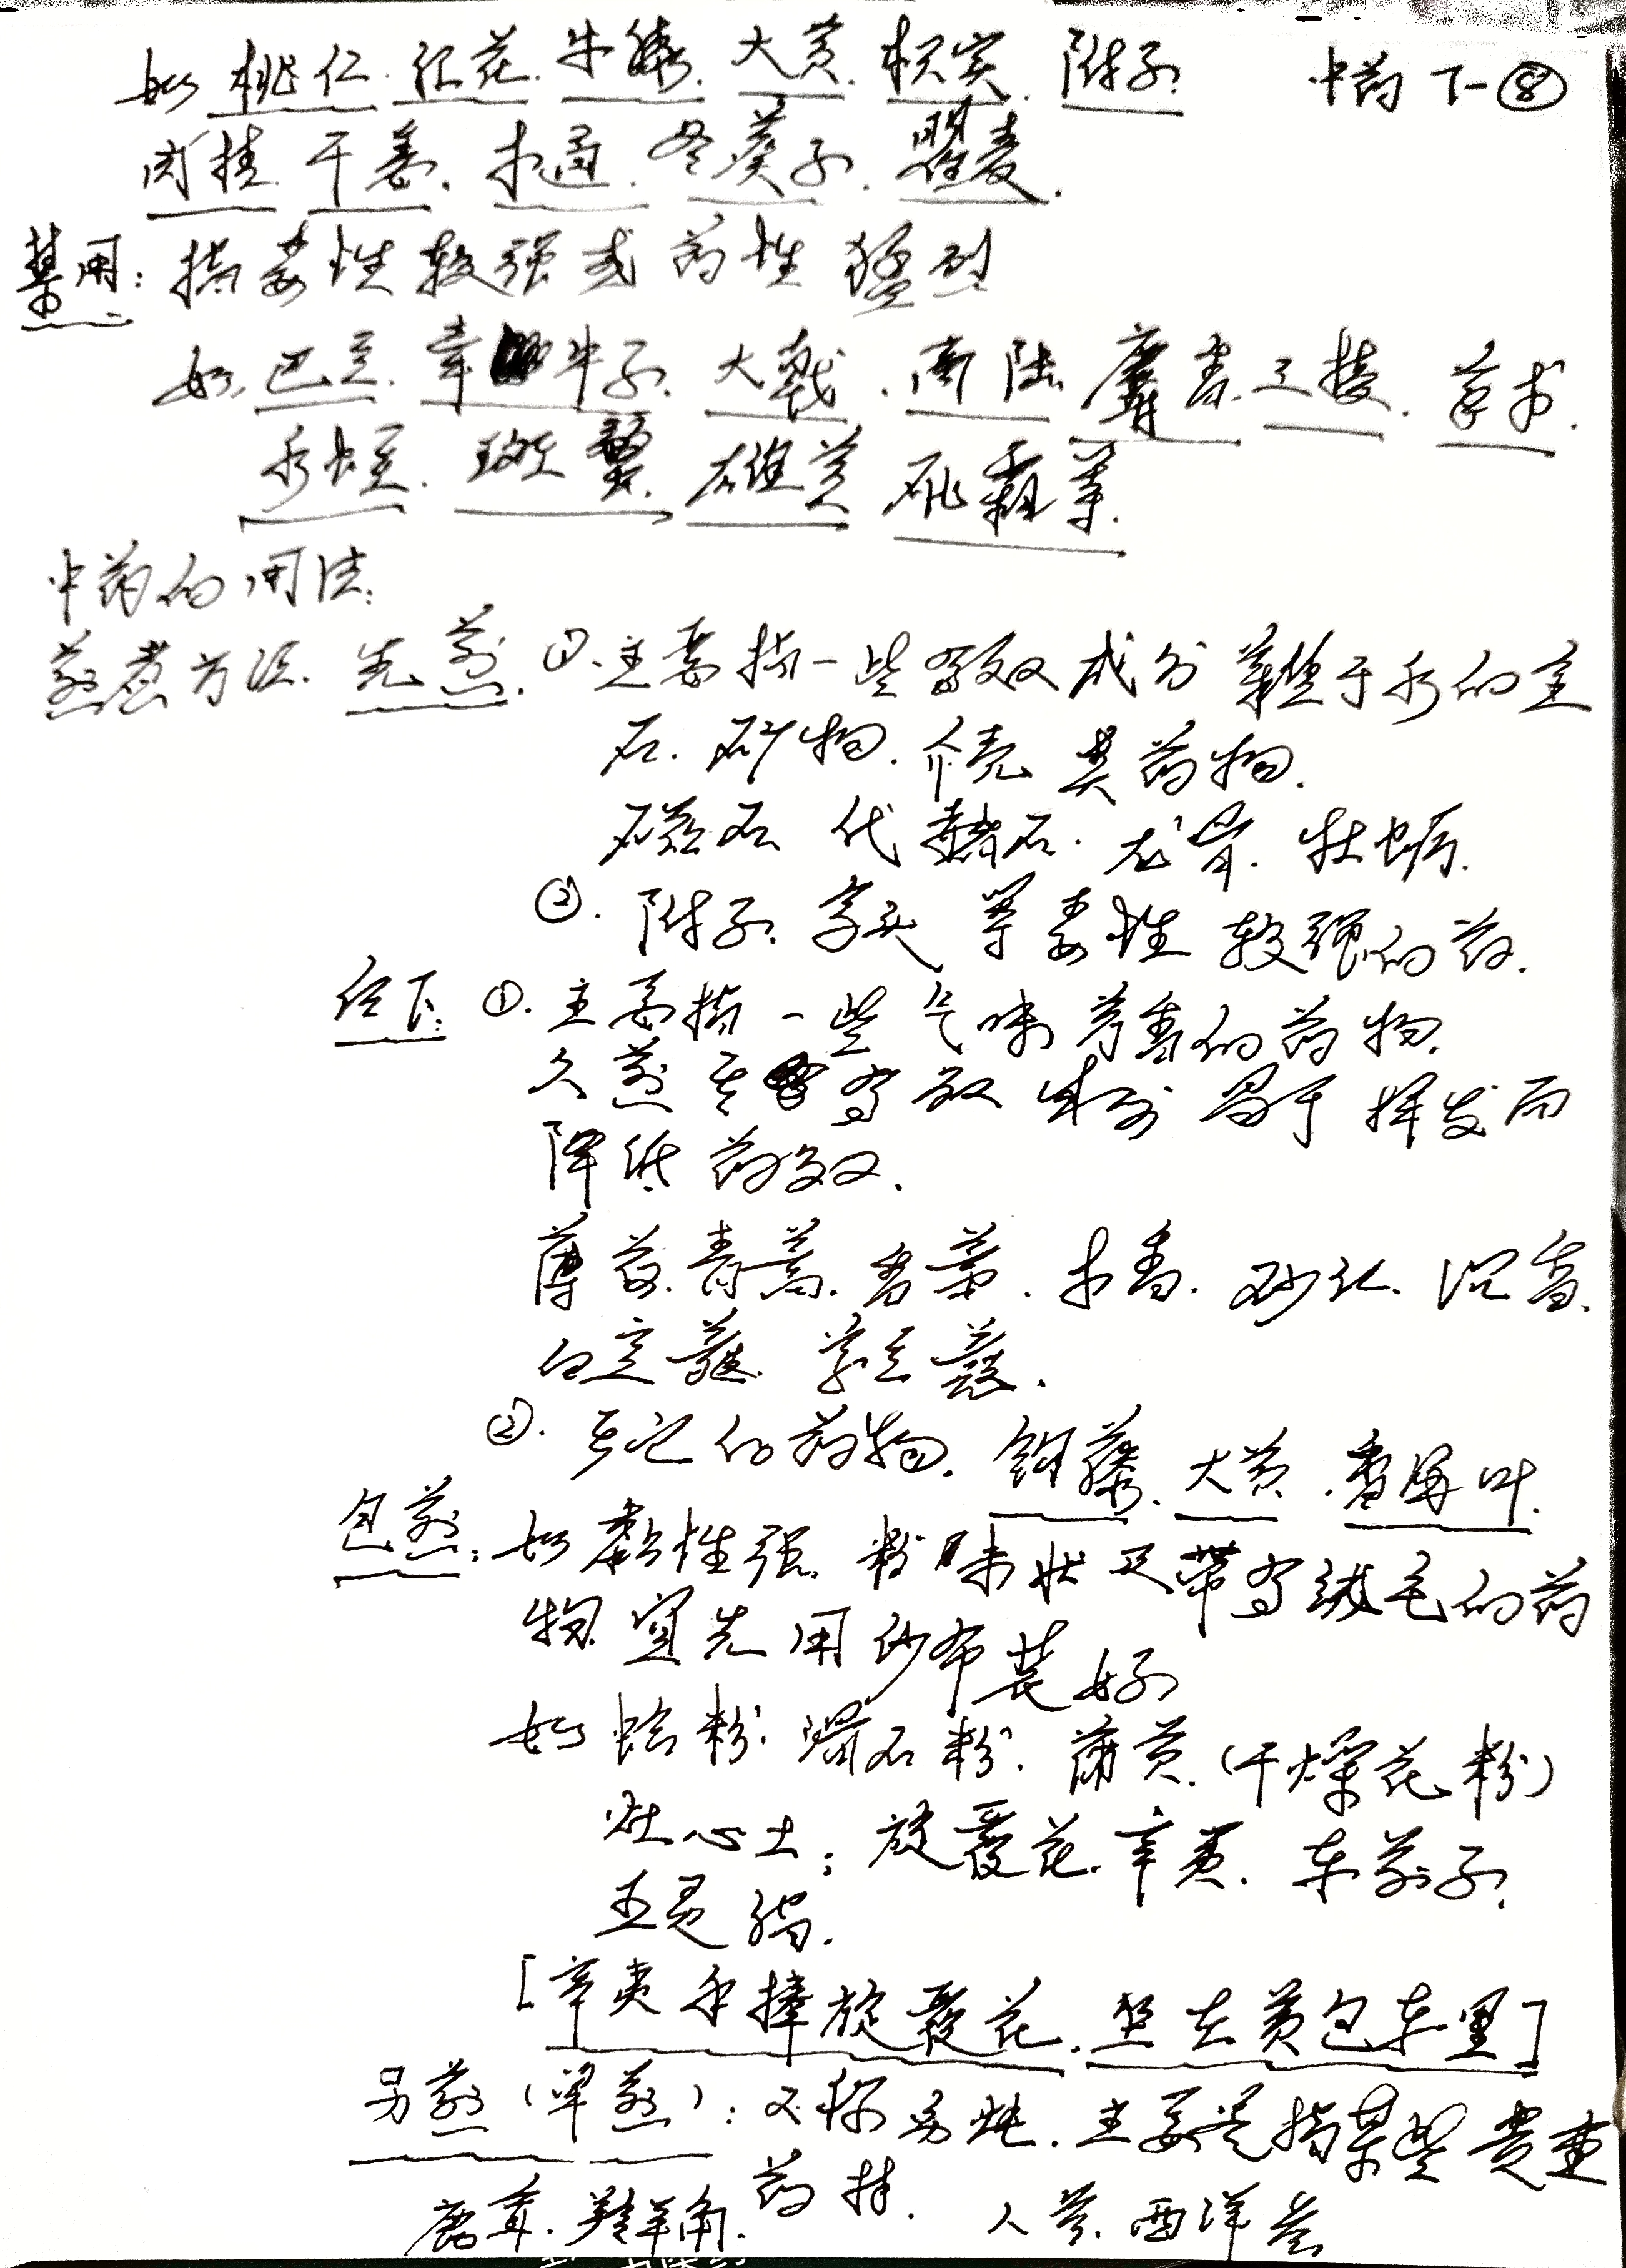 如 桃仁. 红花. 牛膝. 大黄. 枳实. 附子. 中药 下-⑧
肉桂. 干姜. 木通. 冬葵子. 瞿麦.
禁用: 指毒性较强或药性猛烈
如. 巴豆. 牵牛子. 大戟. 商陆 麝香. 三棱. 莪术.
水蛭. 斑蝥. 雄黄 砒霜等.
中药的用法:
煎煮方法. 先煎. ①. 主要指一些有效成分难溶于水的金
石. 矿物. 介壳类药物.
磁石 代赭石. 龙骨. 牡蛎.
②. 附子. 等毒性较强的药.
后下: ①. 主要指一些气味芳香的药物.
久煎其有效成分易于挥发而
降低药效.
薄荷. 青蒿. 香薷. 木香. 砂仁. 沉香.
白豆蔻. 草豆蔻.
②. 其它的药物. 钩藤. 大黄. 番泻叶.
包煎: 如黏性强. 粉末状及带有绒毛的药
物. 宜先用纱布装好
如 蛤粉. 滑石粉. 蒲黄. (干燥花粉)
灶心土; 旋覆花. 辛夷. 车前子.
五灵脂.
[辛夷手捧旋覆花. 坐在黄包车里]
另煎(单煎): 又称另炖. 主要是指某些贵重
药材. 人参. 西洋参
鹿茸. 羚羊角.